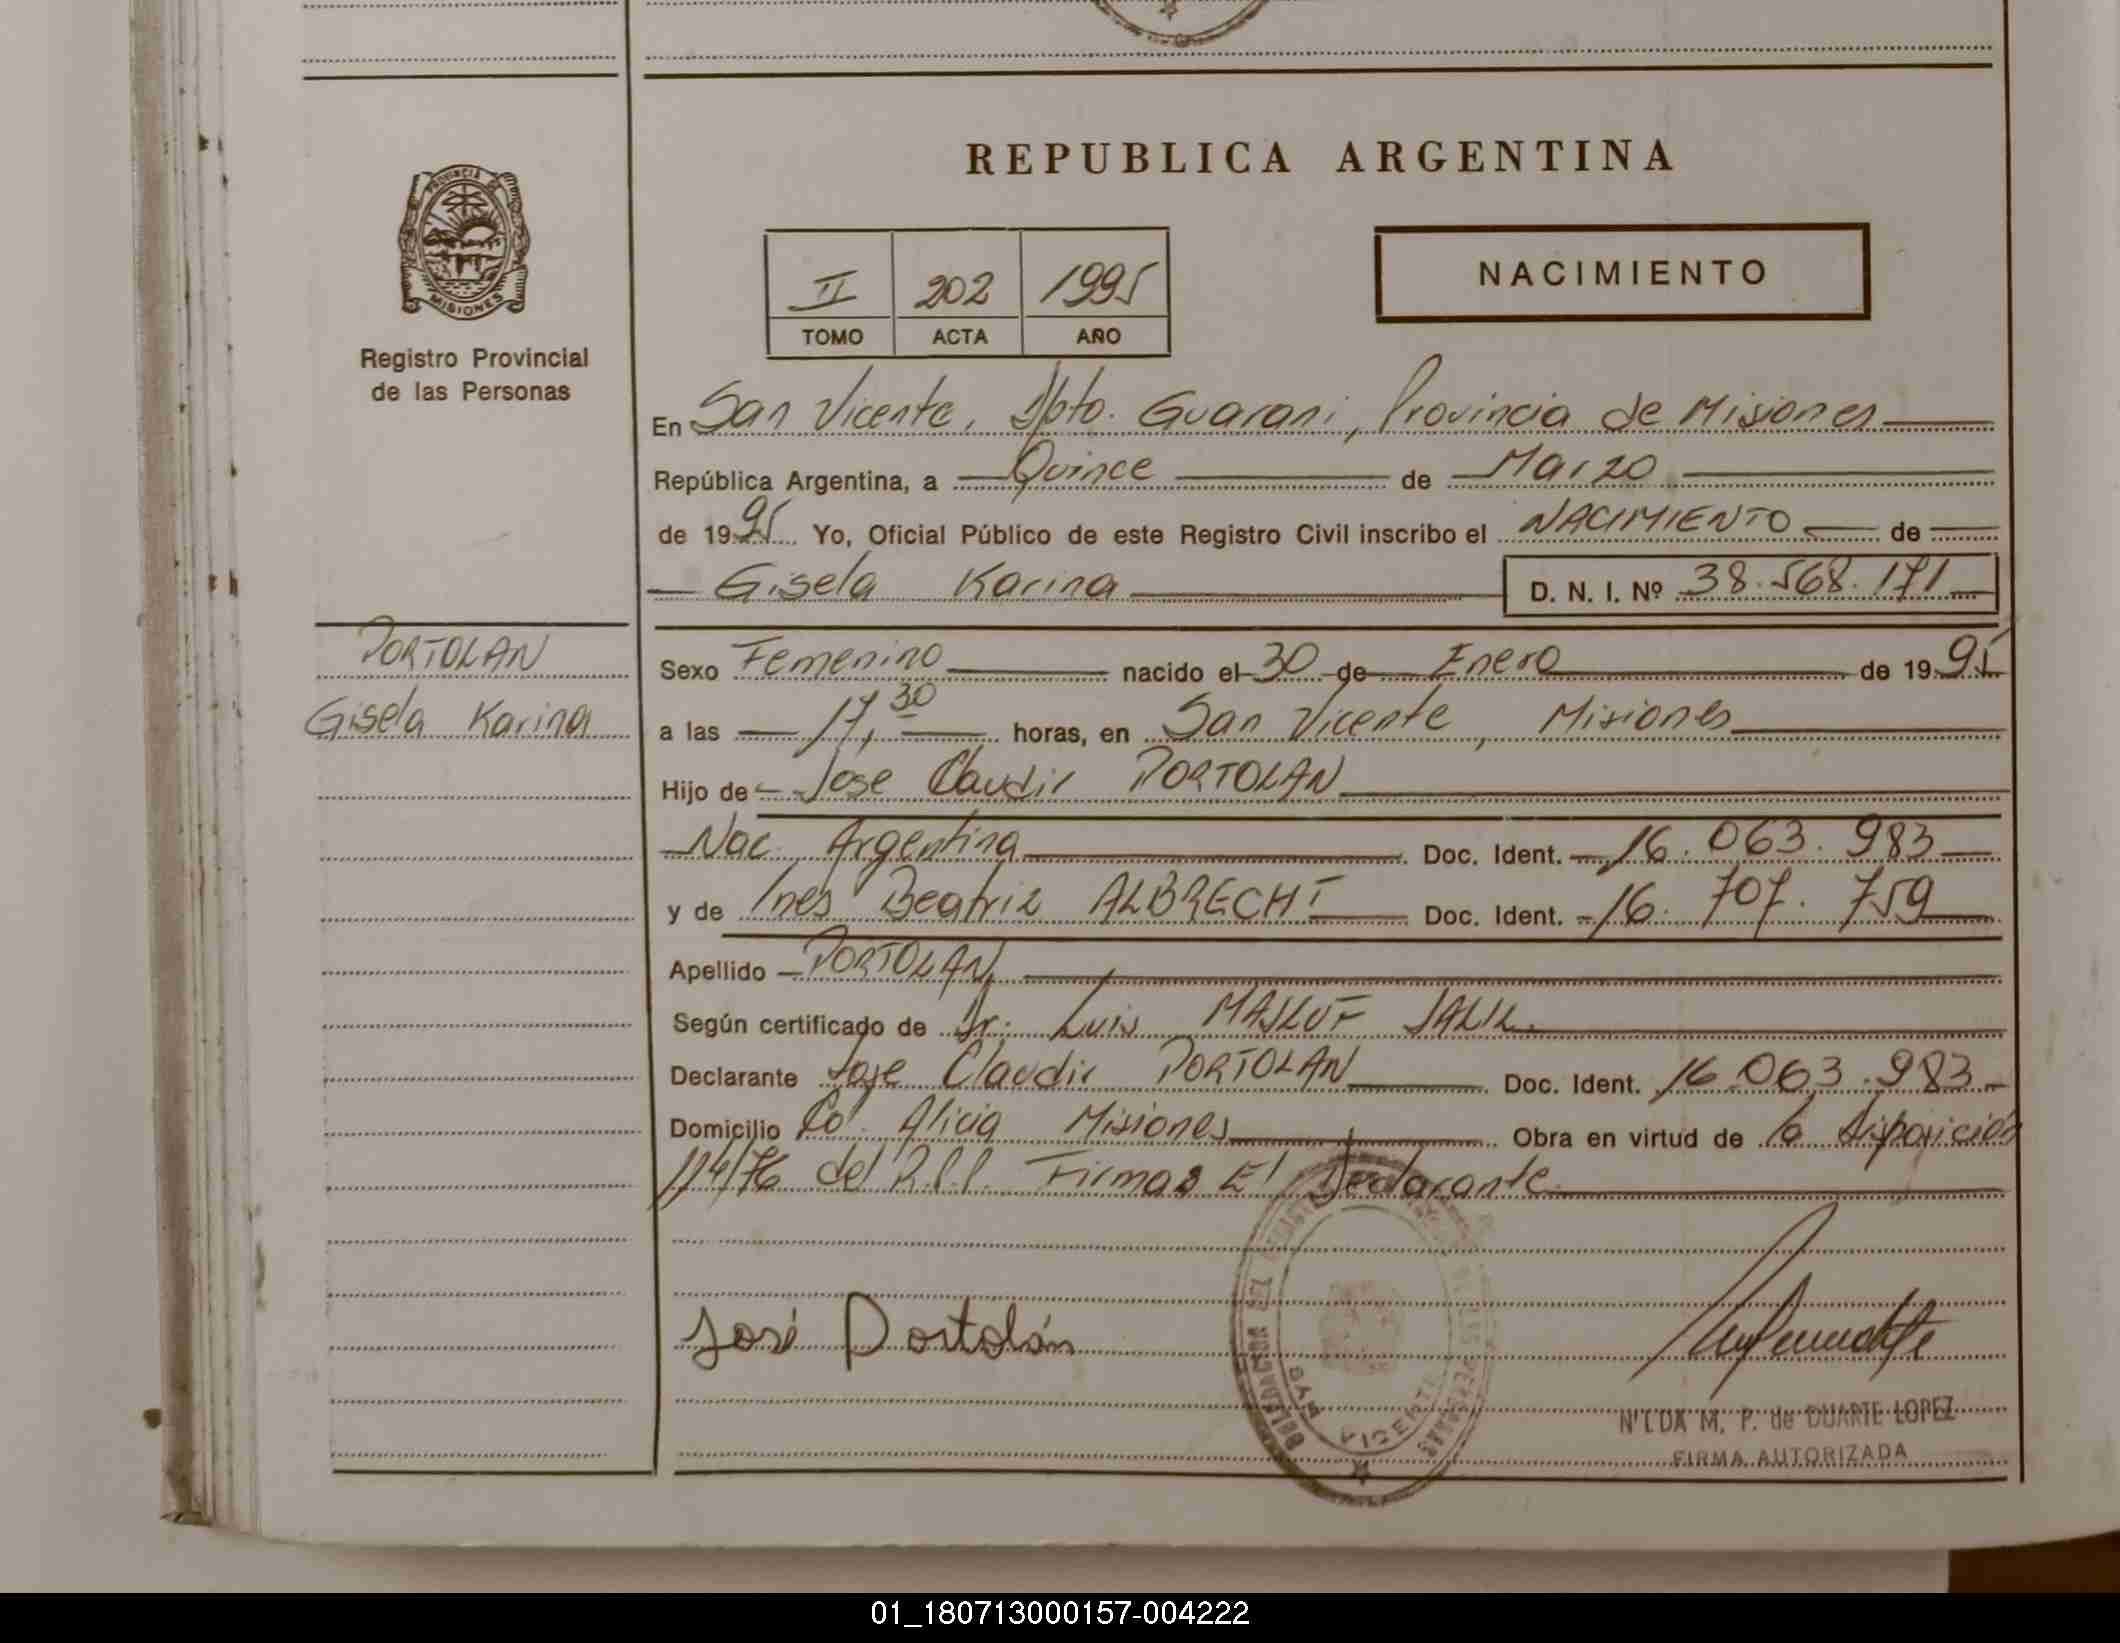 REPUBLICA ARGENTINA
PROVINCIA DE
MISIONES
Registro Provincial
de las Personas
II 202 1995
TOMO ACTA AÑO
NACIMIENTO
En San Vicente, Dpto. Guarani, Provincia de Misiones
República Argentina, a Quince de Marzo
de 1995 Yo, Oficial Público de este Registro Civil inscribo el NACIMIENTO de
Gisela Karina D. N. I. Nº 38.568.171
PORTOLAN
Gisela Karina
Sexo Femenino nacido el 30 de Enero de 1995
a las 17,30 horas, en San Vicente, Misiones
Hijo de Jose Claudir PORTOLAN
Nac. Argentina Doc. Ident. 16.063.983
y de Ines Beatriz ALBRECHT Doc. Ident. 16.707.759
Apellido PORTOLAN
Según certificado de Dr. Luis MASLUF JALIL
Declarante Jose Claudir PORTOLAN Doc. Ident. 16.063.983
Domicilio Co. Alicia Misiones Obra en virtud de la disposición
114/76 del R.P.P. Firmas El Declarante
José Portolán
VICENTE
NILDA M. P. de DUARTE LOPEZ
FIRMA AUTORIZADA
01_180713000157-004222